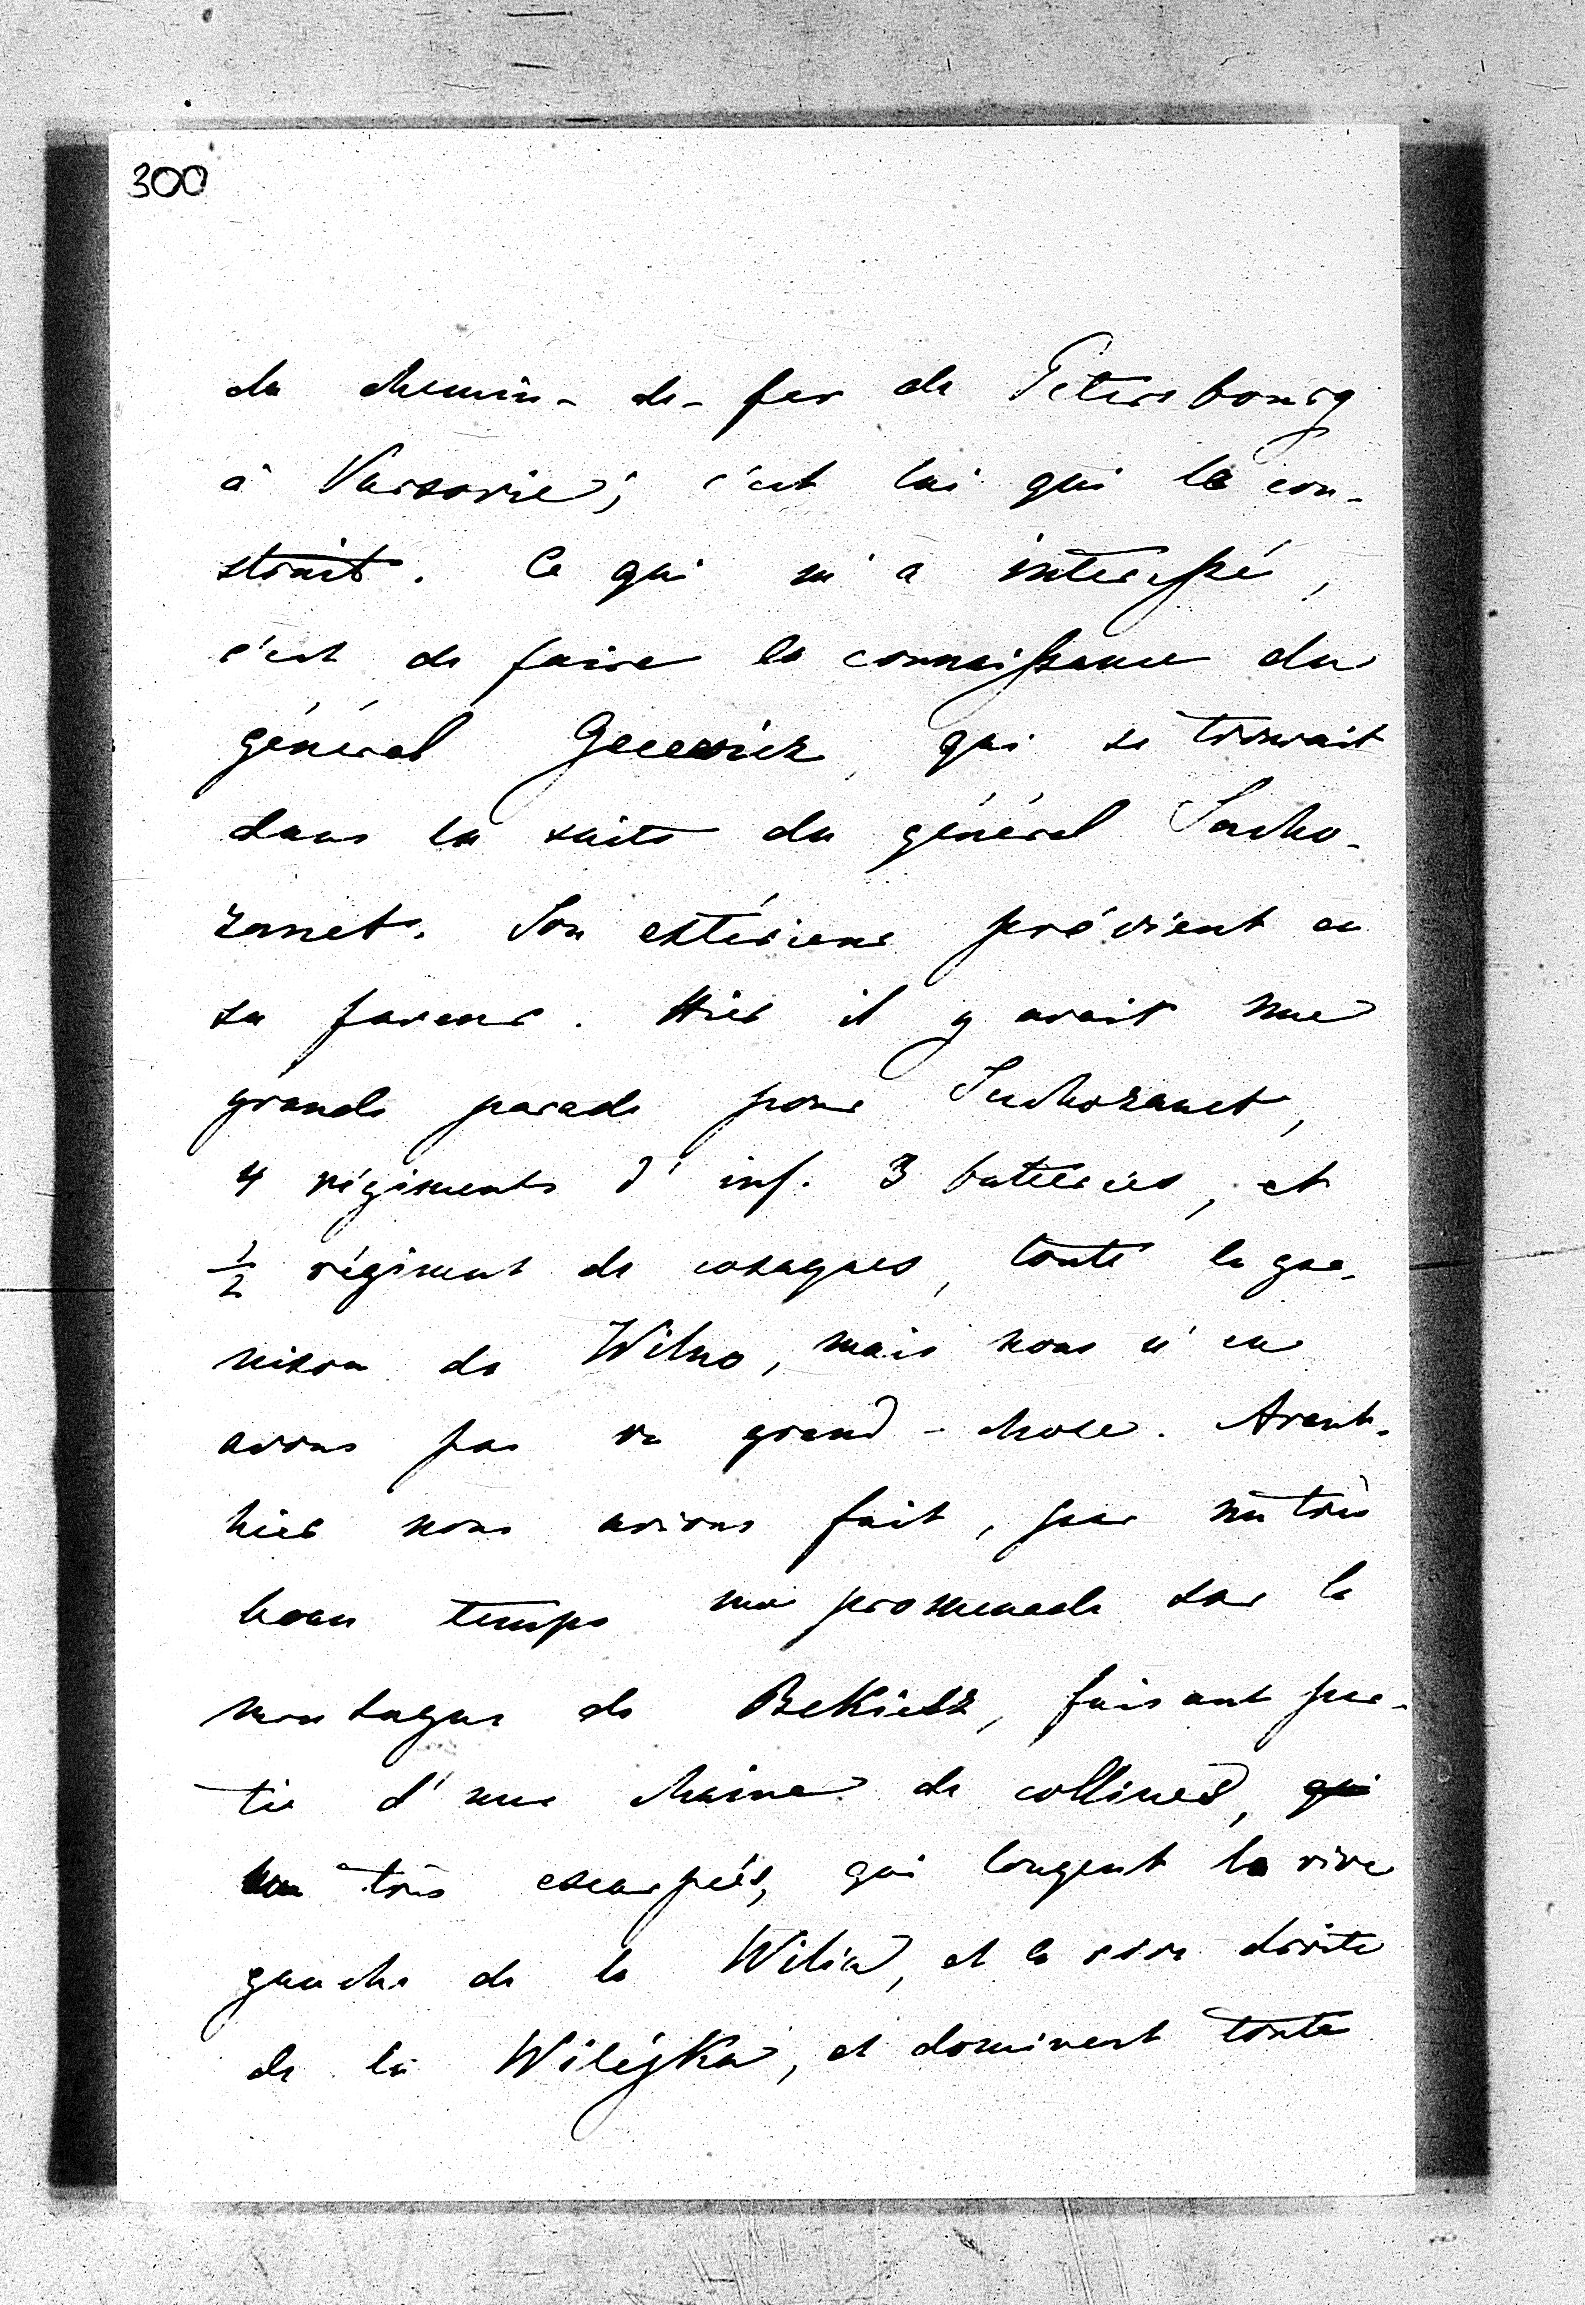 300
du chemin-de-fer de Pétersbourg
à Varsovie; c'est lui qui le con-
struit. Ce qui m'a interessé,
c'est de faire la connaissance du
général Gecewicz, qui se trouvait
dans la suite du général Sucho-
zanet. Son extérieur prévient en
sa faveur. Hier il y avait une
grande parade pour Suchozanet,
4 régiments d'inf. 3 batteries, et
½ régiment de cosaques, toute la gar-
nison de Wilno, mais nous n'en
avons pas vu grand-chose. Avant-
hier nous avions fait, par un très
beau temps une promenade sur la
montagne de Bekiesz, faisant par-
tie d'une chaine de collines, qui
très escarpées, qui longent la rive
gauche de la Wilia, et la rive droite
de la Wiléjka, et dominent toute